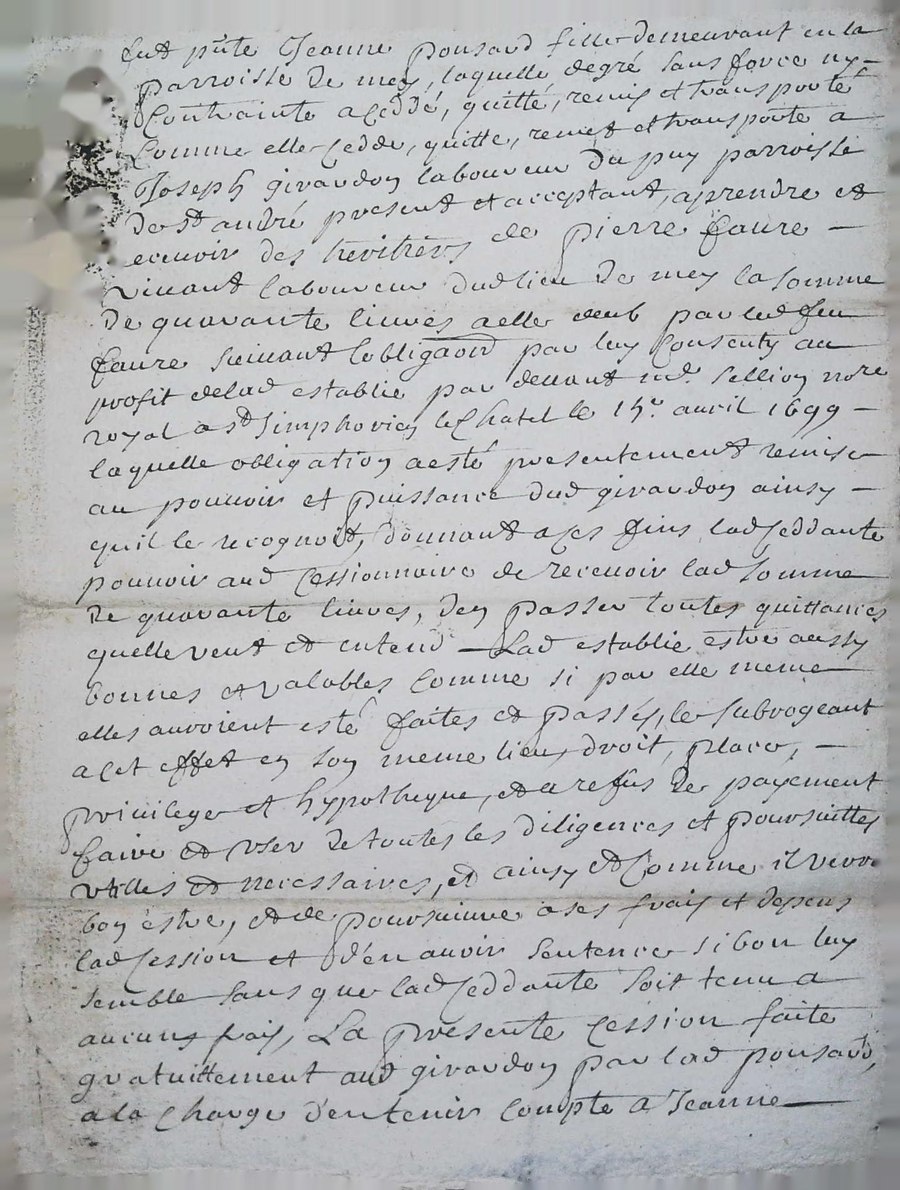 fut pnte Jeanne ponsard fille demeurant en la
parroisse de mey, laquelle degré sans force ny
Contrainte a Ceddé, quitté, remis et transporté
Comme elle Cedde, quitte, remet et transporte a
Joseph girardon laboureur du puy parroisse
de st andré present et acceptant, aprendre et
recevoir des heritiers de pierre faure
vivant laboureur dud lieu de mey la somme
de quarante livres a elle deub par led feu
faure suivant lobligaon par luy Consenty au
profit delad establie par devant me sellion nore
royal a st Simphorien le Chatel le 15e avril 1699
laquelle obligation a esté presentement remise
au pouvoir et puissance dud girardon ainsy
quil le recognoit, donnant a Ces fins lad Ceddante
pouvoir aud Cessionnaire de recevoir lad somme
de quarante livres, den passer toutes quittances
quelle veut et entend Lad establie estre aussy
bonnes et valables Comme si par elle meme
elles auroient esté faites et passés, le subrogeant
a Cet effet en son meme lieu, droit, place,
privilege et hypotheque, et a refus de payement
faire et user de toutes les diligences et poursuittes
utiles et necessaires, et ainsy et Comme il verra
bon estre, et de poursuivre a ses frais et depens
lad Cession et d'en avoir sentence si bon luy
semble sans que lad Ceddante soit tenu a
aucuns frais, La presente Cession faite
gratuittement aud girardon par lad ponsard,
a la Charge d'en tenir Compte a Jeanne